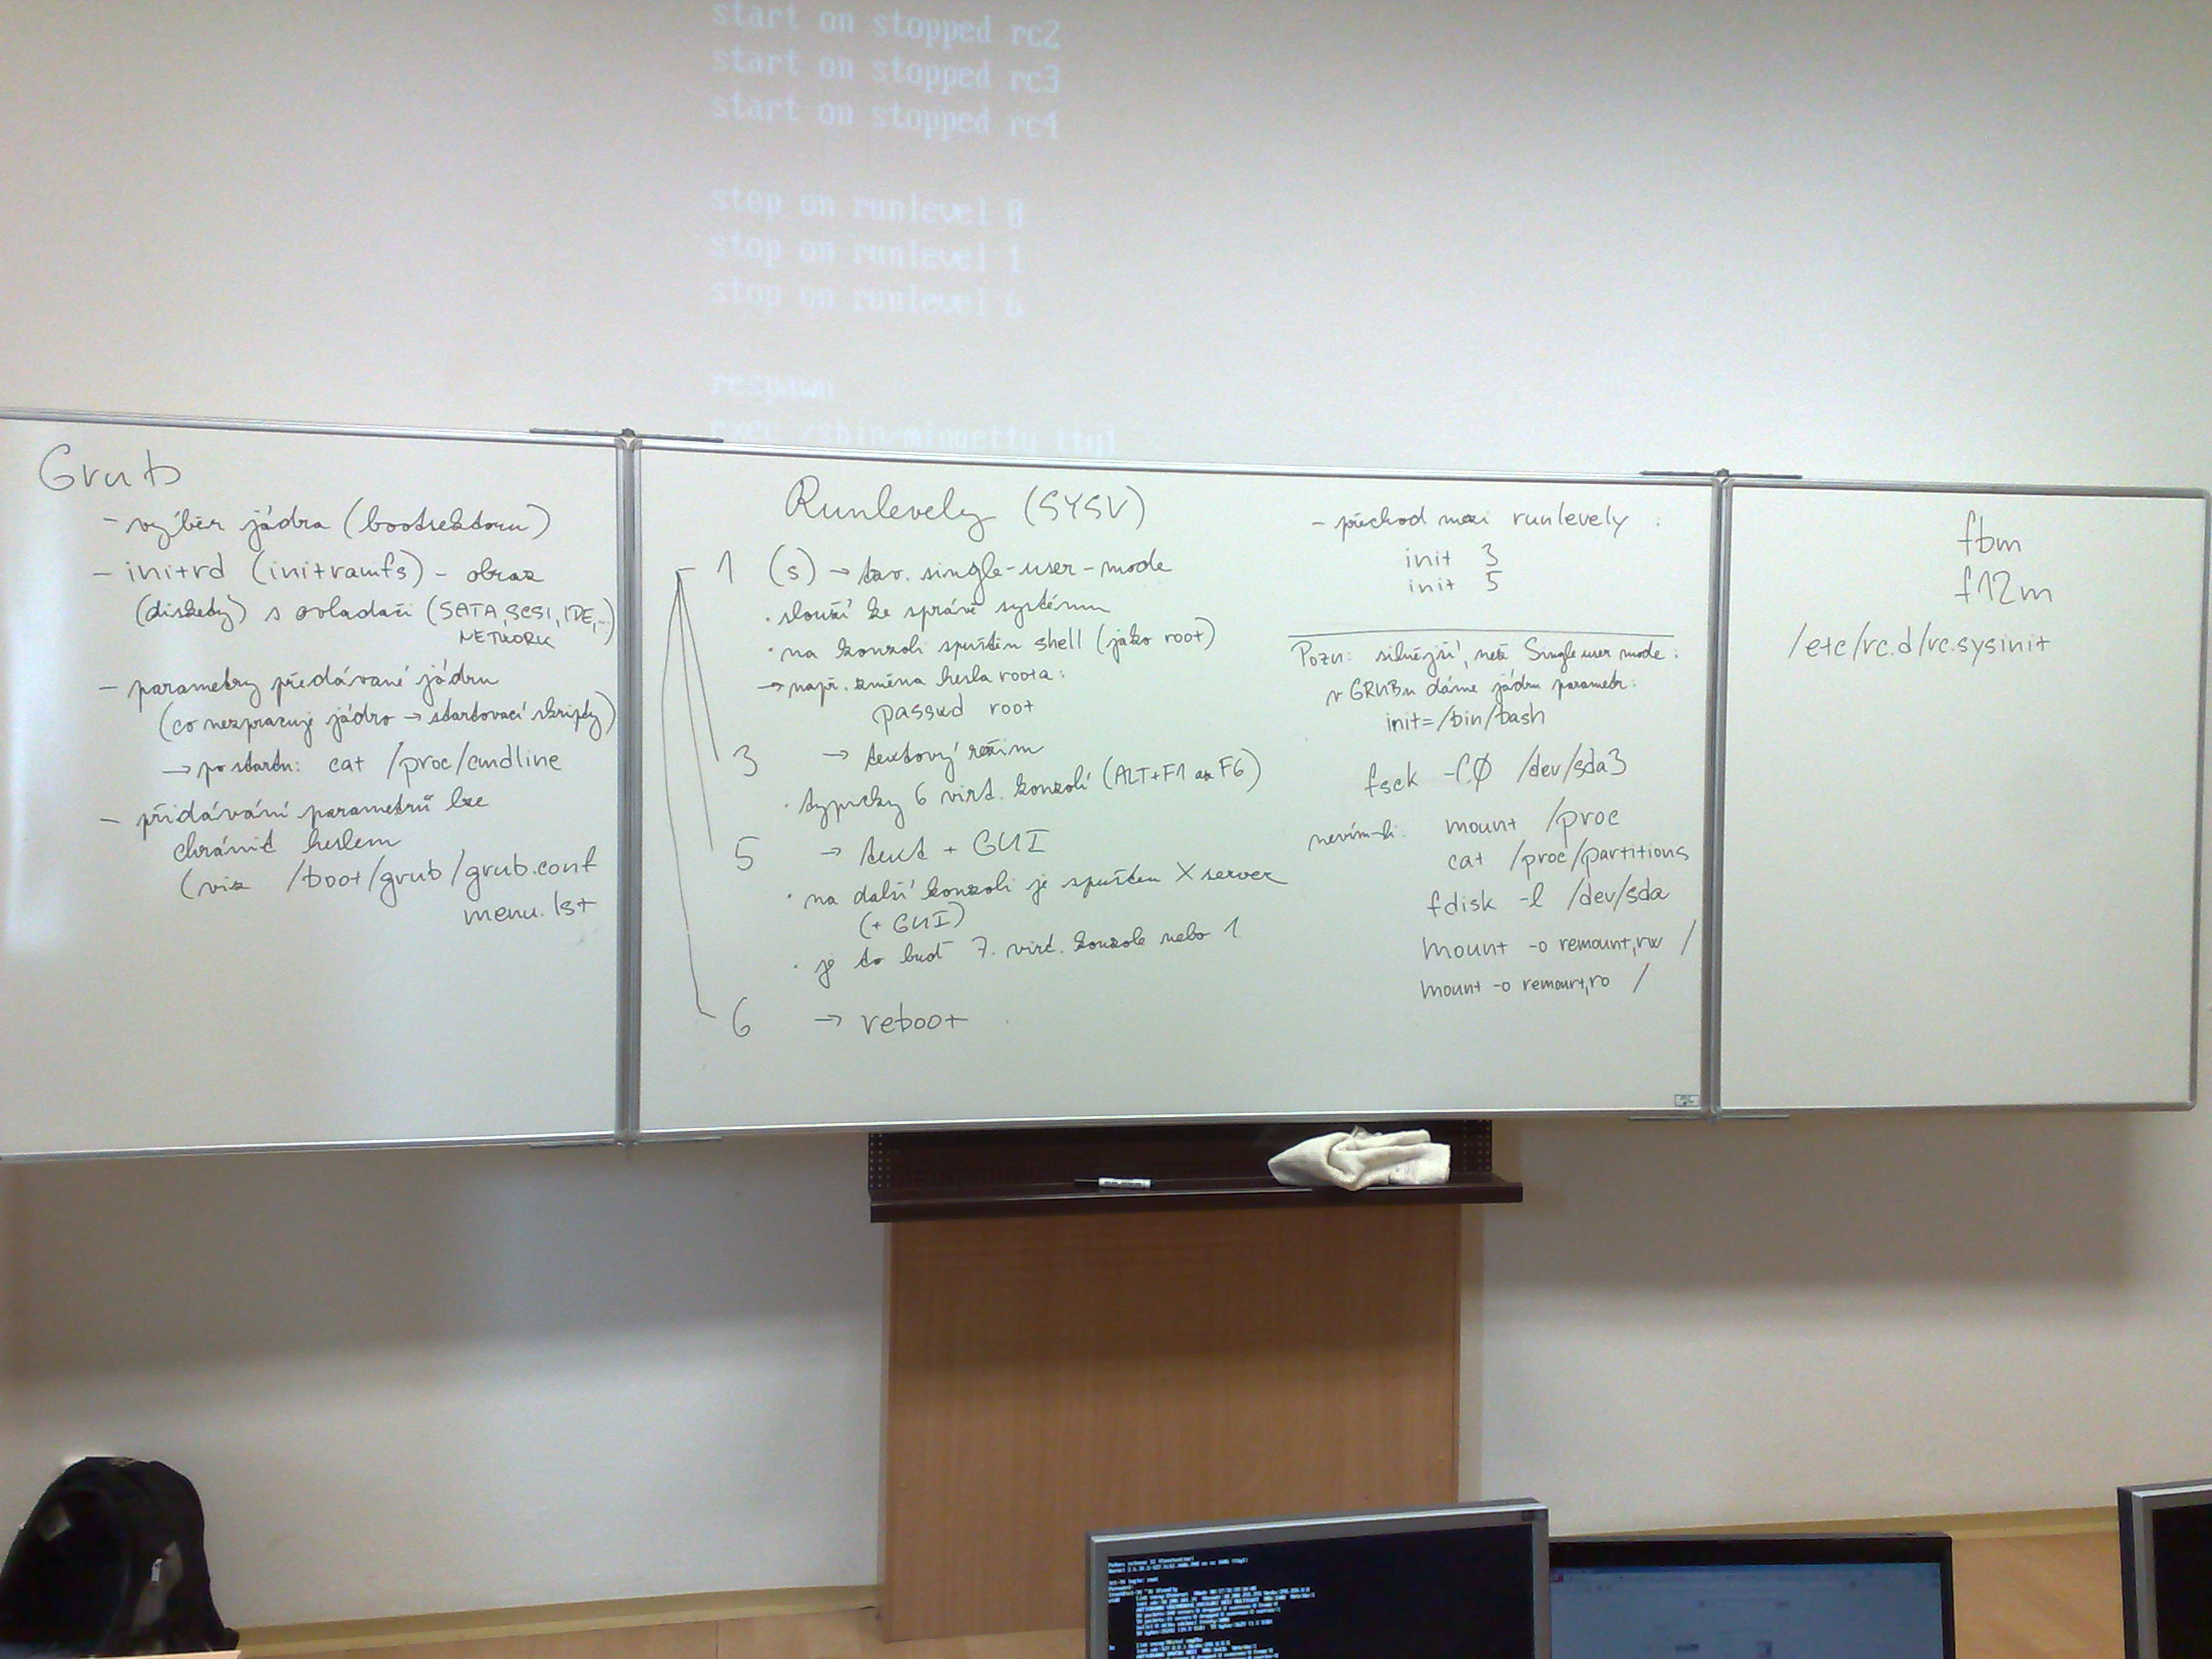 start on stopped rc2
start on stopped rc3
start on stopped rc4
stop on runlevel 0
stop on runlevel 1
stop on runlevel 6
respawn
exec /sbin/mingetty tty1
Grub
- výběr jádra (bootsektoru)
- initrd (initramfs) - obraz
(diskety) s ovladači (SATA, SCSI, IDE, ...)
NETWORK
- parametry předávané jádru
(co nezpracuje jádro → startovací skripty)
→ po startu: cat /proc/cmdline
- přidávání parametrů lze
chránit heslem
(viz /boot/grub/grub.conf
menu.lst
Runlevely (SYSV)
- 1 (s) → tzv. single-user-mode
· slouží ke správě systému
· na konzoli spuštěn shell (jako root)
→ např. změna hesla roota:
passwd root
3 → textový režim
· typicky 6 virt. konzolí (ALT+F1 až F6)
5 → text + GUI
· na další konzoli je spuštěn X server
(+ GUI)
· je to buď 7. virt. konzole nebo 1.
6 → reboot
- přechod mezi runlevely :
init 3
init 5
Pozn: silnější, než Single user mode:
v GRUBu dáme jádru parametr:
init=/bin/bash
fsck /dev/sda3
nevím-li: mount /proc
cat /proc/partitions
fdisk -l /dev/sda
mount -o remount,rw /
mount -o remount,ro /
fbm
f12m
/etc/rc.d/rc.sysinit